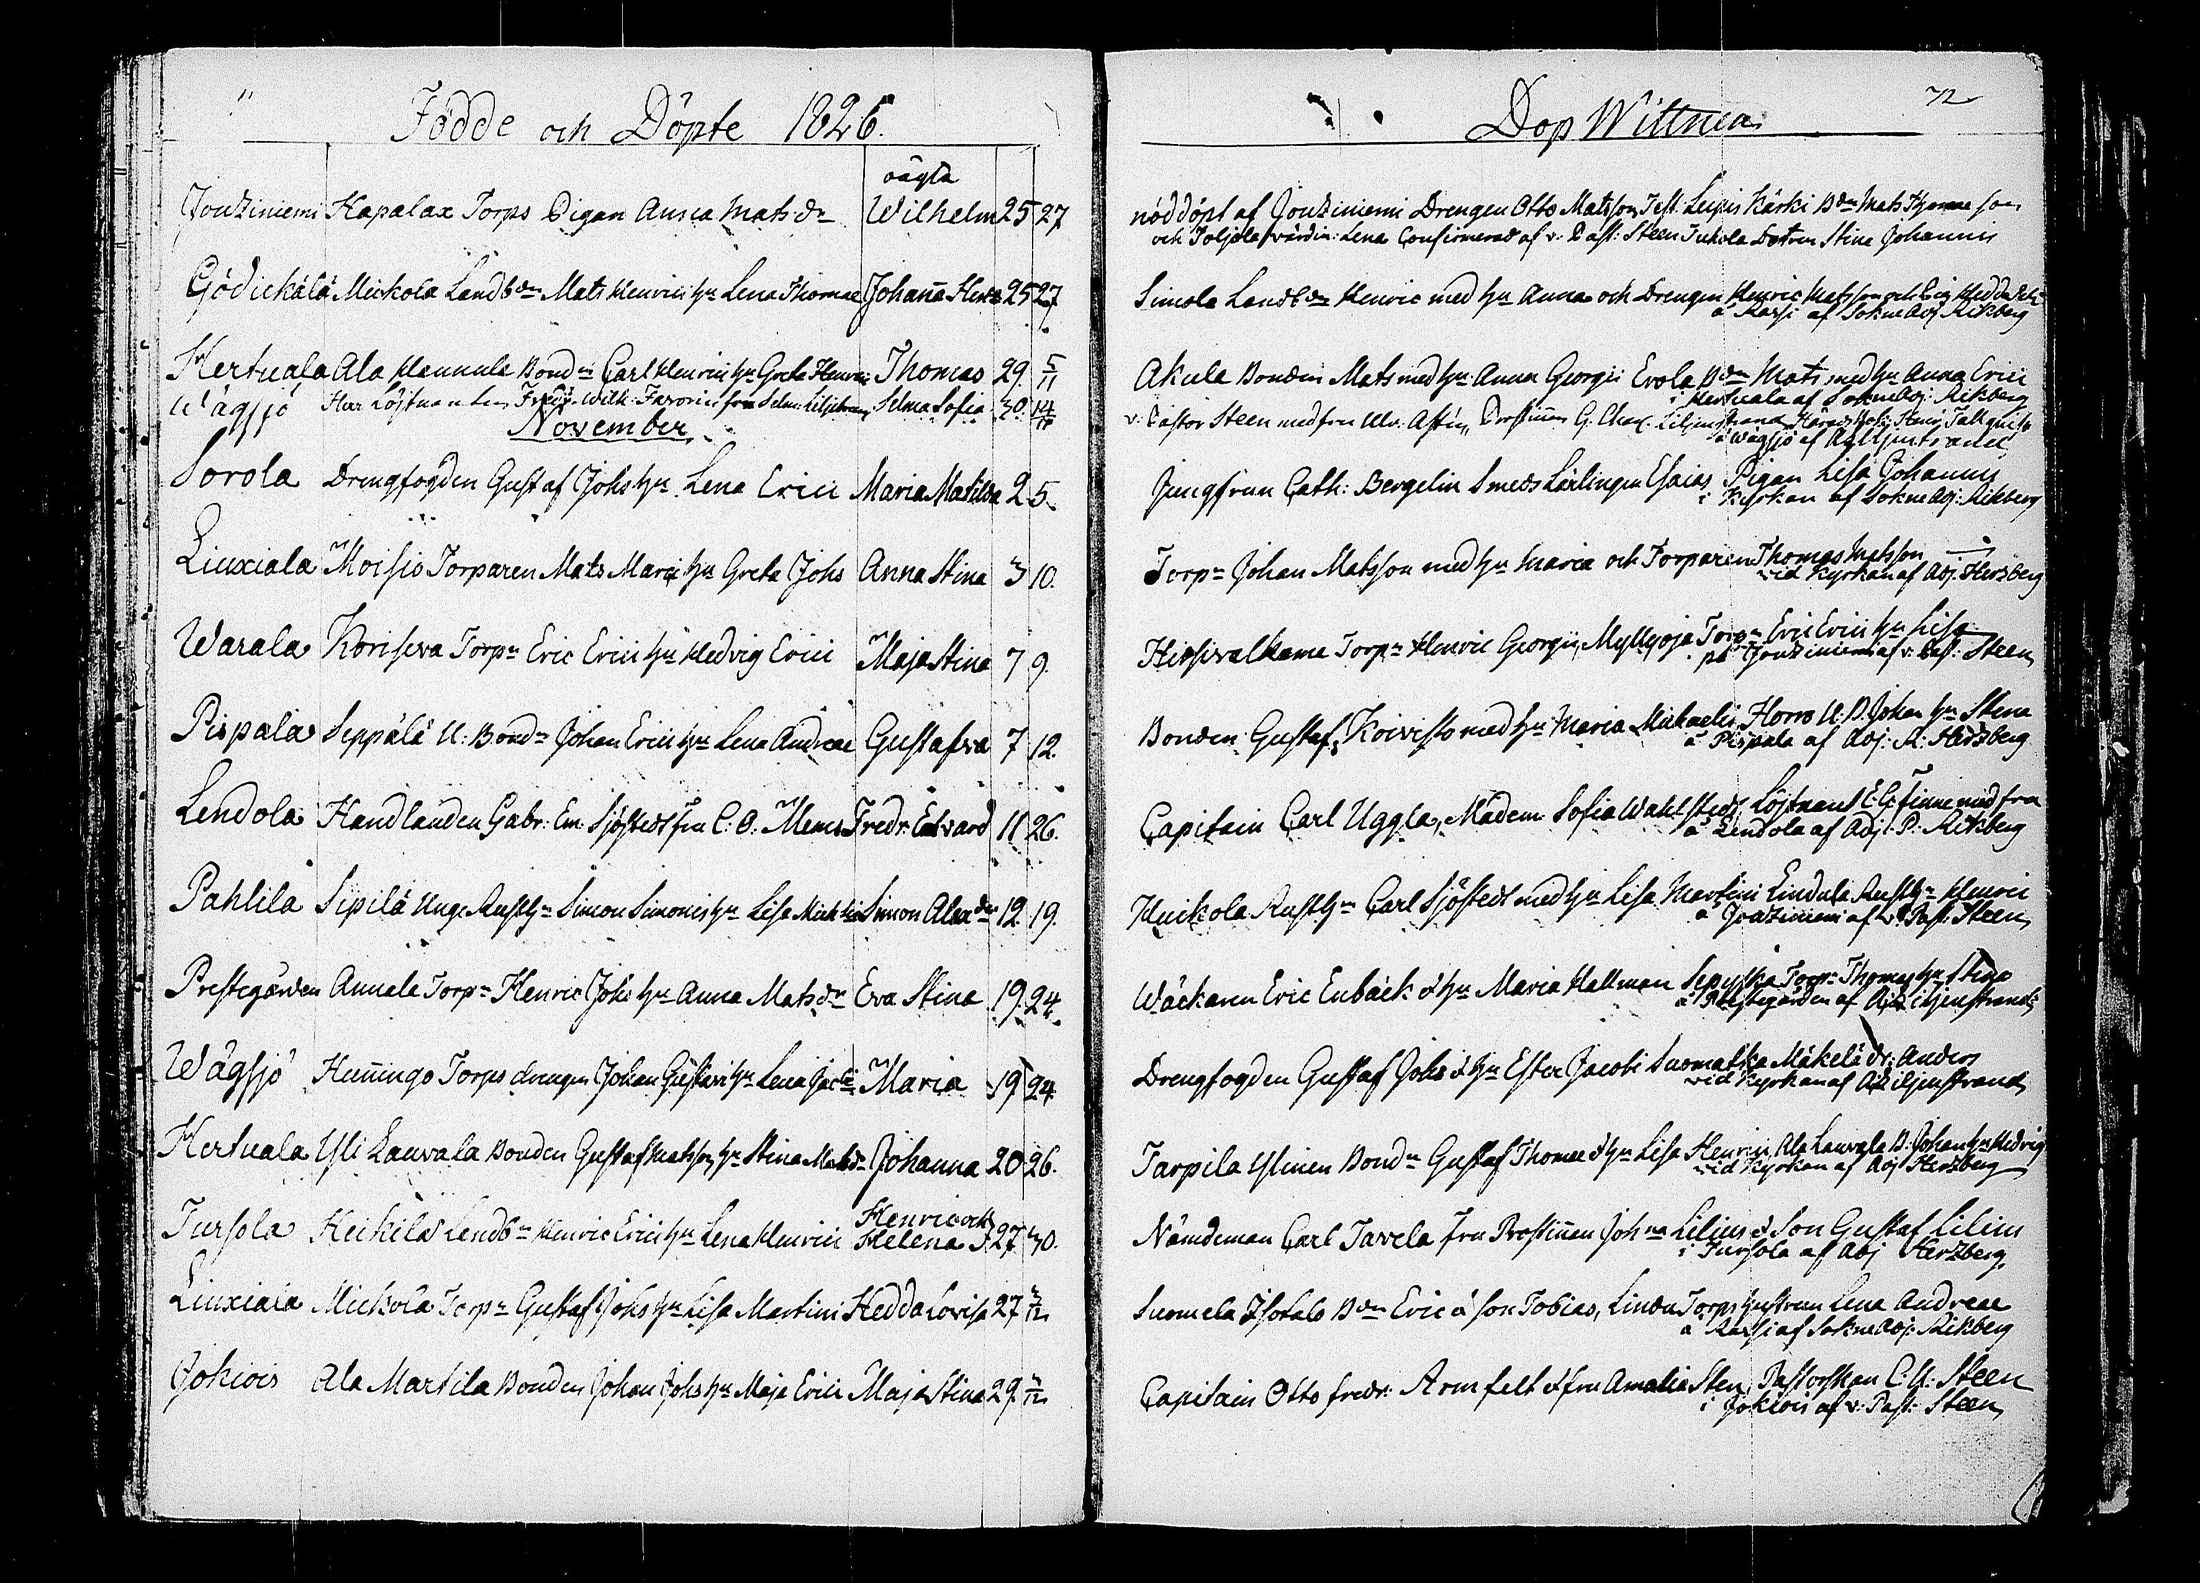 Födde och Döpte 1826.
oägta
Joutziniemi Hapalax Torps Pigan Anna Mats dr Wilhelm 25 27
Gödickälä Mickola Landbdn Mats Henrici hu Lena Thomae Johanna Hedv 25 27
Hertuala Ala Hannula Bondn Carl Henrici hu Greta Henrici Thomas 29. 5/11
Wågsjö Herr Löjtnanten Wilh: Favorin fru Selma Liljestrand Selma Sofia 30. 14/11
November
Sorola Drengfogden Gustaf Johs hu Lena Erici Maria Matilda 2 5.
Liuxiala Moisio Torparen Mats hu Greta Johs Anna Stina 3 10.
Warala Koriseva Torpn Eric Erici hu Hedvig Erici Maja Stina 7 9.
Pispala Seppälä U: Bondn Johan Erici hu Lena Andreae Gustafva 7 12.
Lendola Handlanden Gabr: Em: Sjöstedt fru C: O: Fredr: Edvard 11 26.
Pahlila Sipilä Unge Rusthn Simon Simonis hu Lisa Simon Alexdr 12 19.
Prestegården Annala Torpn Henric Johs hu Anna Matsdr Eva Stina 19. 24.
Wågsjö Henningo Torps drengen Johan Gustavi hu Lena Maria 19 24
Hertuala Yli Lauvala Bonden Gustaf Matsson hu Stina Matsdr Johanna 20 26.
Tursola Heikilä Landbn Henric Erici hu Lena Henrici Henric och Helena T. 27 30.
Liuxiala Mickola Torpn Gustaf Johs hu Lisa Martini Hedda Lovisa 27 3/12
Jokiois Ala Martila Bonden Johan Johs hu Maja Erici Maja Stina 29. 3/12
72
Dop Wittnen
nöddöpt af Joutziniemi Drengen Otto Matsson, Test: Kärki Bdn Mats
och värdin: Lena Confirmerad af v: Past: Steen Dottren Stina Johannis
Simola Landbdn Henric med hu Anna och Drengen Henric Matsson och Pig Hedda
å Karsi af Sokne Adj Aikberg
Akula Bonden Mats med hu Anna Georgii Erola Bdn Mats med hu Anna Erici
i Hertuala af Sokne Adj: Aikberg
v. Pastor Steen med fru Ulr. Prostinnan G. Char. Liljenstrand Henr: Tallqvist
å Wågsjö af A. Liljenstrand
Jungfrun Cath: Bergelin Smeds Lärlingen Esaias Pigan Lisa Johannis
i Kyrkan af Sokne Adj: Aikberg
Torpn Johan Matsson med hu Maria och Torparen Thomas Matsson
vid Kyrkan af Adj: Herzberg
Torpn Henric Georgii, Myllyoja Torpn Eric Erici hu Lisa
på Joutziniemi af v: Past: Steen
Bonden Gustaf Koivisto med hu Maria Michaelis Horro U: B. Johan hu Stina
å Pispala af Adj: A: Herzberg
Capitain Carl Uggla, Madem Sofia Wahlstedt, Löjtnant E. G. Finne med fru
å Lendola af Adj: P: Aikberg
Huikola Rusthn Carl Sjöstedt med hu Lisa Martini Lindula Rusthn Henric
å Joutziniemi af v: Past: Steen
Wäckaren Eric Enbäck & hu Maria Hallman Torpn Thomas hu Stina
å Prestegården af Adj: Liljenstrand
Drengfogden Gustaf Johs & hu Ester Jacobi Suomatka Mäkelä dr: Anders
vid Kyrkan af A: Liljenstrand
Tarpila Ylinen Bondn Gustaf Thomae & hu Lisa Henrici, Ala Lauvala B: Johan hu Hedvig
vid Kyrkan af Adj Herzberg
Nämdeman Carl Tavela fru Prostinnan Johna Lilius & Son Gustaf Lilius
i Tursola af Adj Herzberg.
Suomela Isotalo Bdn Eric & son Tobias, Linda Torps hustrun Lena Andreae
å Karsi af Sokne Adj: Aikberg
Capitain Otto fredr: Armfelt & fru Amalia Sten, Pastorskan C: U: Steen
i Jokiois af v: Past: Steen